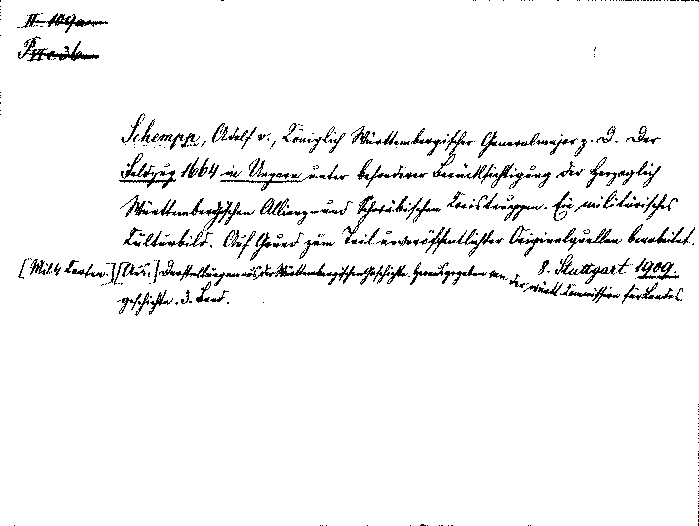 II 109
Schempp, Adolf v., Königlich Württembergischer Generalmajor z. D. Der
Feldzug 1664 in Ungarn unter besonderer Berücksichtigung der herzoglich
Württembergischen Allianz- und Schwäbischen Kreistruppen. Ein militärisches
Kulturbild. Auf Grund zum Teil unveröffentlichter Originalquellen bearbeitet.
[Mit 4 Karten.] [Aus:] Darstellungen aus der Württembergischen Geschichte. Herausgegeben von der Württ. Kommission für Landes-
8. Stuttgart 1909.
geschichte. 3. Band.